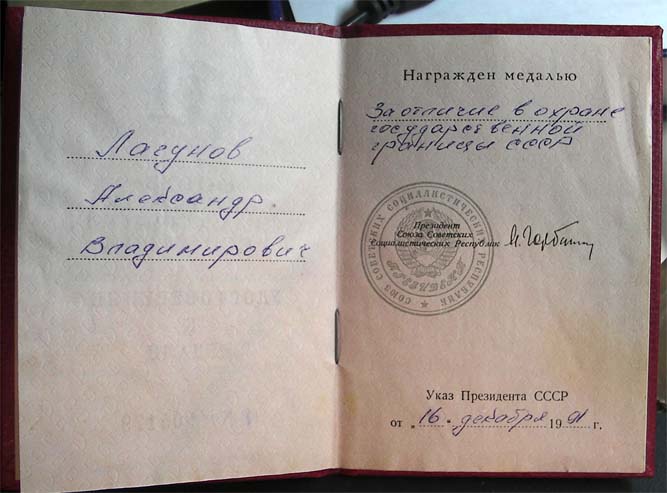 Лагунов
Александр
Владимирович
Награжден медалью
За отличие в охране
государственной
границы СССР
Президент
Союза Советских
Социалистических Республик
М. Горбачев
СОЮЗ СОВЕТСКИХ СОЦИАЛИСТИЧЕСКИХ РЕСПУБЛИК
ПРЕЗИДЕНТ
Указ Президента СССР
от „16“ декабря 1991 г.